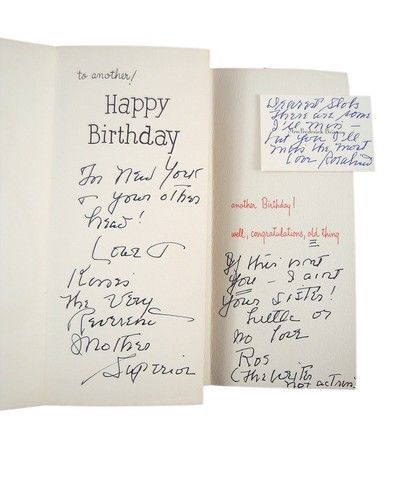 to another!
Happy
Birthday
For New York
& your other
head!
Love &
Kisses
The Very
Reverend
Mother
Superior
Dearest
There are some
I'll miss
Mrs. Frederick Brisson
but you I'll
miss the most
Love Rosalind
another Birthday!
well, congratulations, old thing
If this isnt
you - I aint
your sister!
hello or
no love
Ros
(The Writer
not actress)